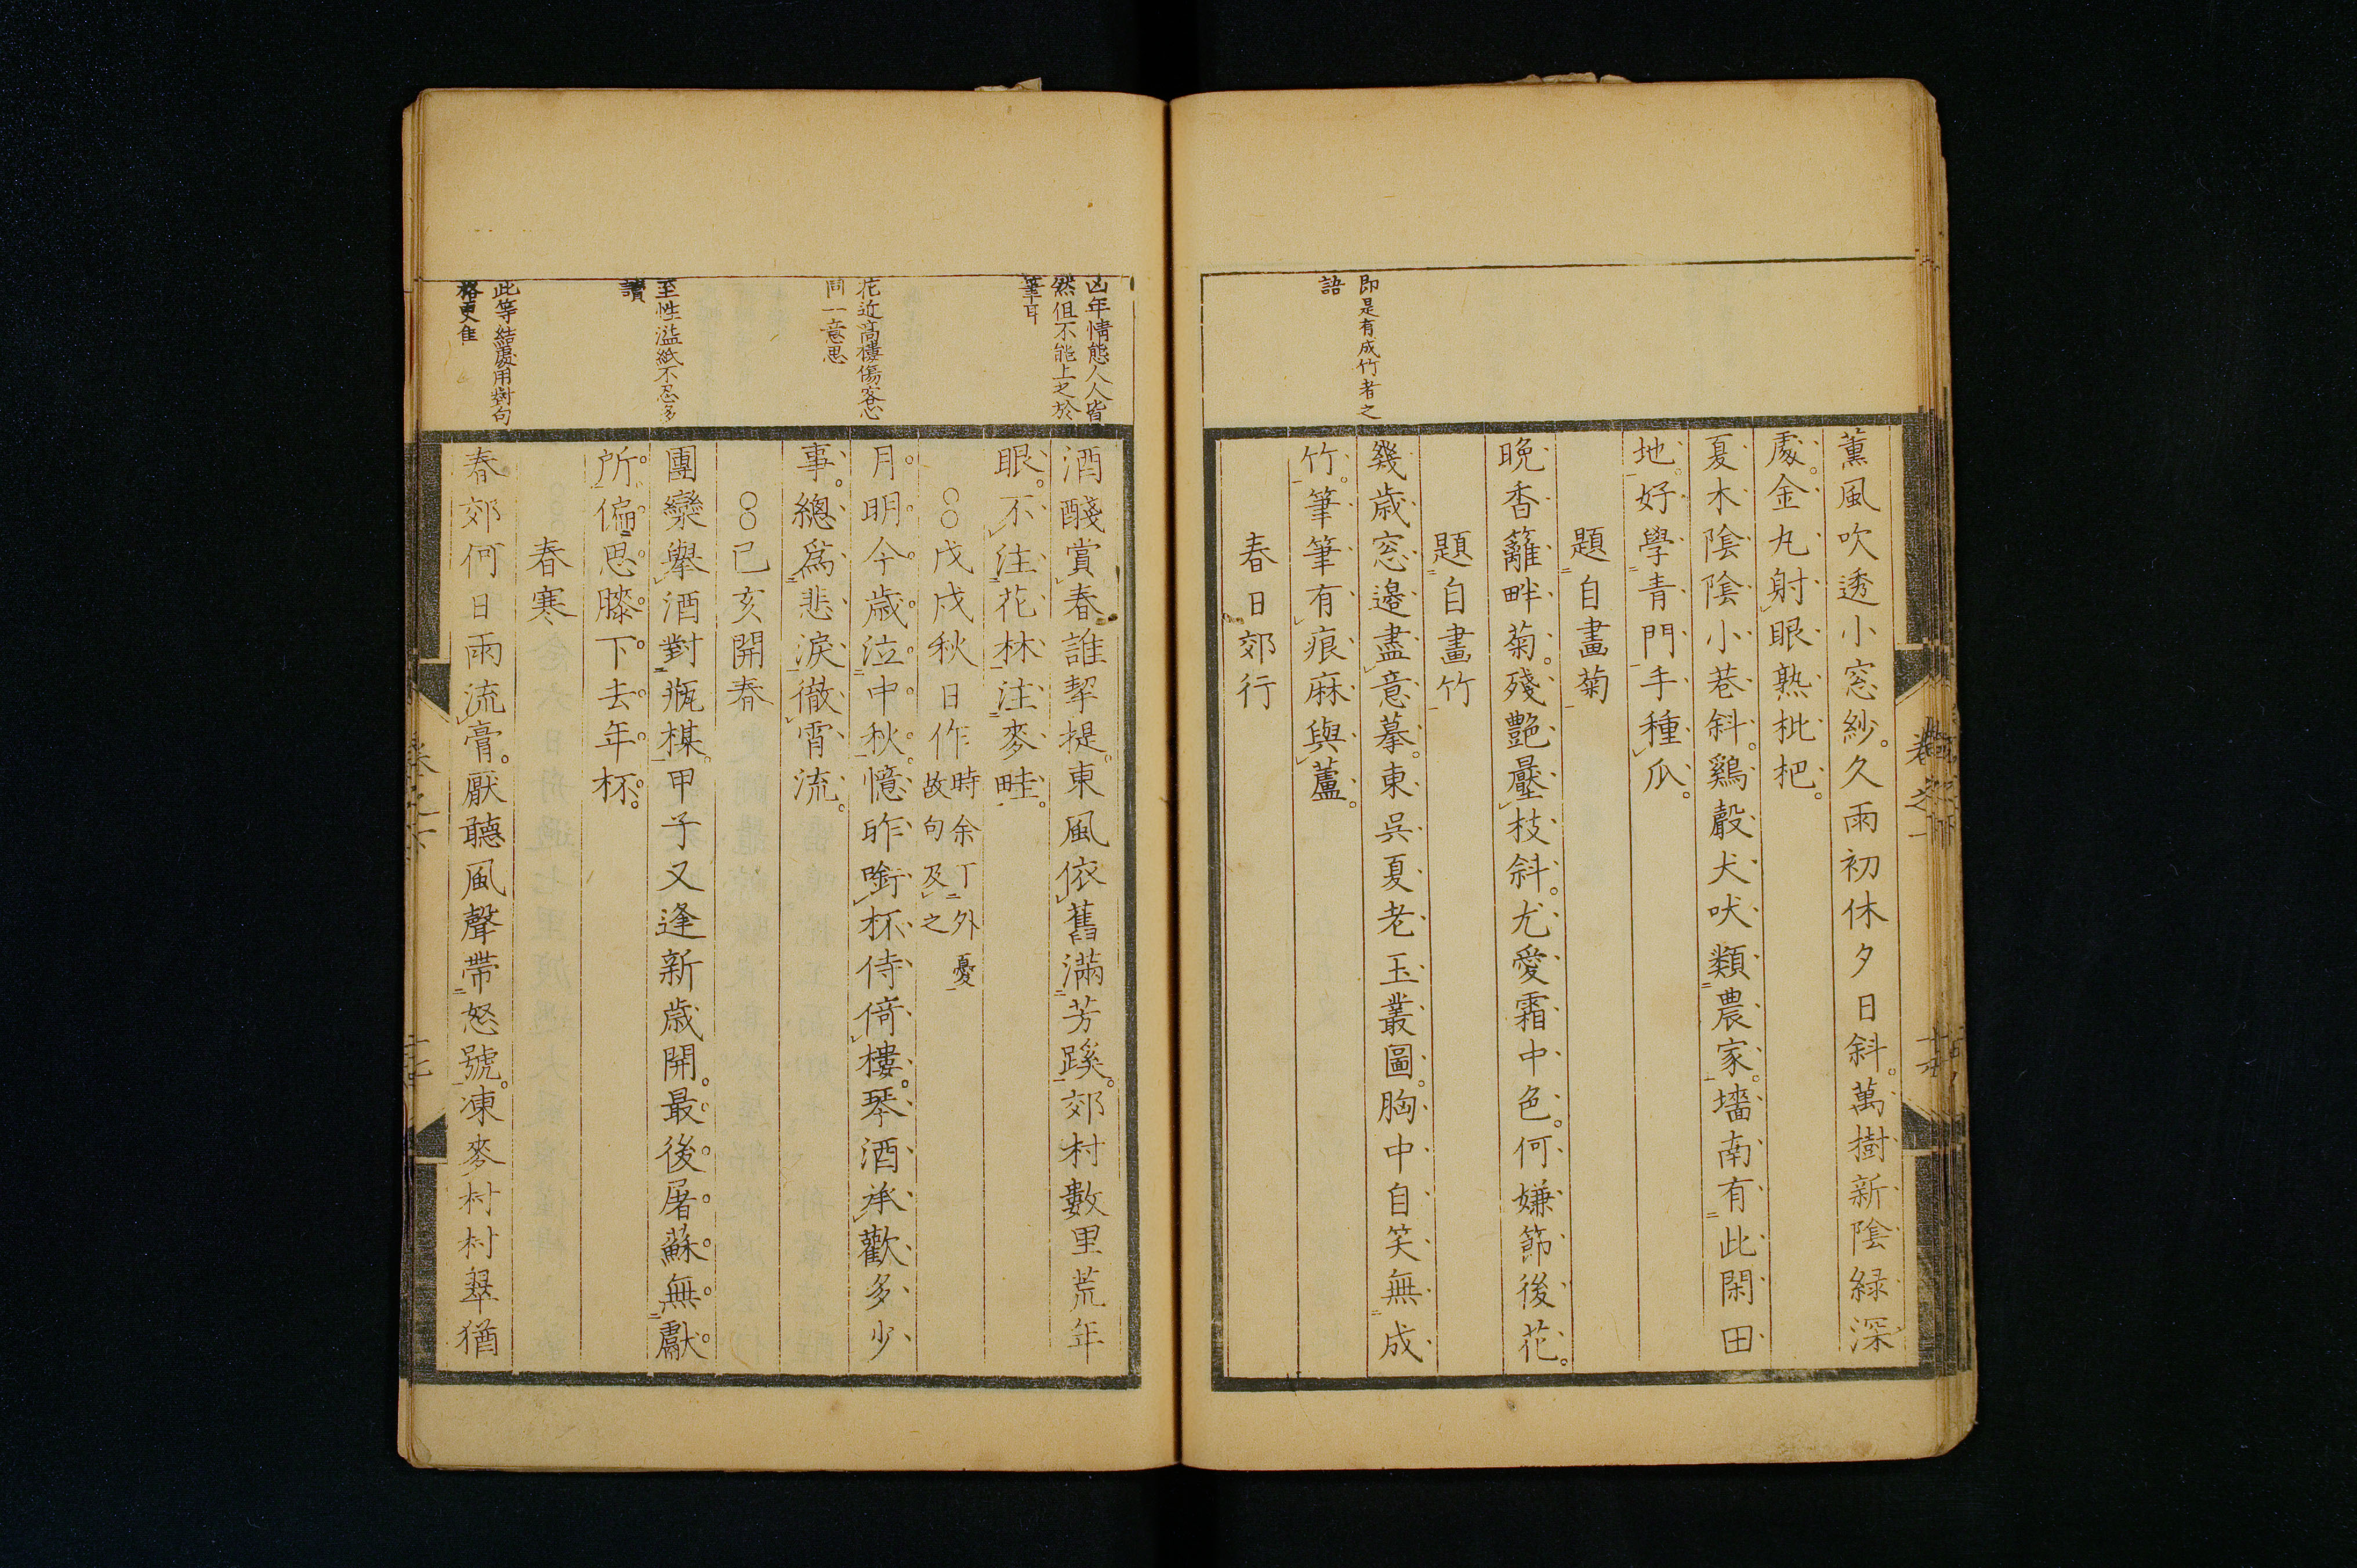 薰風吹透小窓紗。久雨初休夕日斜。萬樹新陰緑深
處。金丸射眼熟枇杷。
夏木陰陰小巷斜。鷄聲犬吠類農家。墻南有此閑田
地。好學青門手種瓜。
題自畫菊
晩香籬畔菊。殘艶壓枝斜。尤愛霜中色。何嫌節後花。
題自畫竹
幾歳窓邊盡意摹。東呉夏老玉叢圖。胸中自笑無成
竹。筆筆有痕麻與蘆。
春日郊行
即是有成竹者之
語
卷之一
酒醆賞春誰挈提。東風依舊滿芳蹊。郊村數里荒年
眼。不注花林注麥畦。
○○戊戌秋日作時余丁外憂
故句及之
月明今歳泣中秋。憶昨啣杯侍倚樓。琴酒承歡多少
事。總爲悲淚徹霄流。
○○己亥開春
團欒擧酒對瓶楳。甲子又逢新歳開。最後屠蘇無獻
所。偏思膝下去年杯。
春寒
春郊何日雨流膏。厭聽風聲帶怒號。凍麥村村翠猶
凶年情態人人皆
然但不能上之於
筆耳
花近高樓傷客心
同一意思
至性溢紙不忍多
讀
此等結處用對句
格更佳